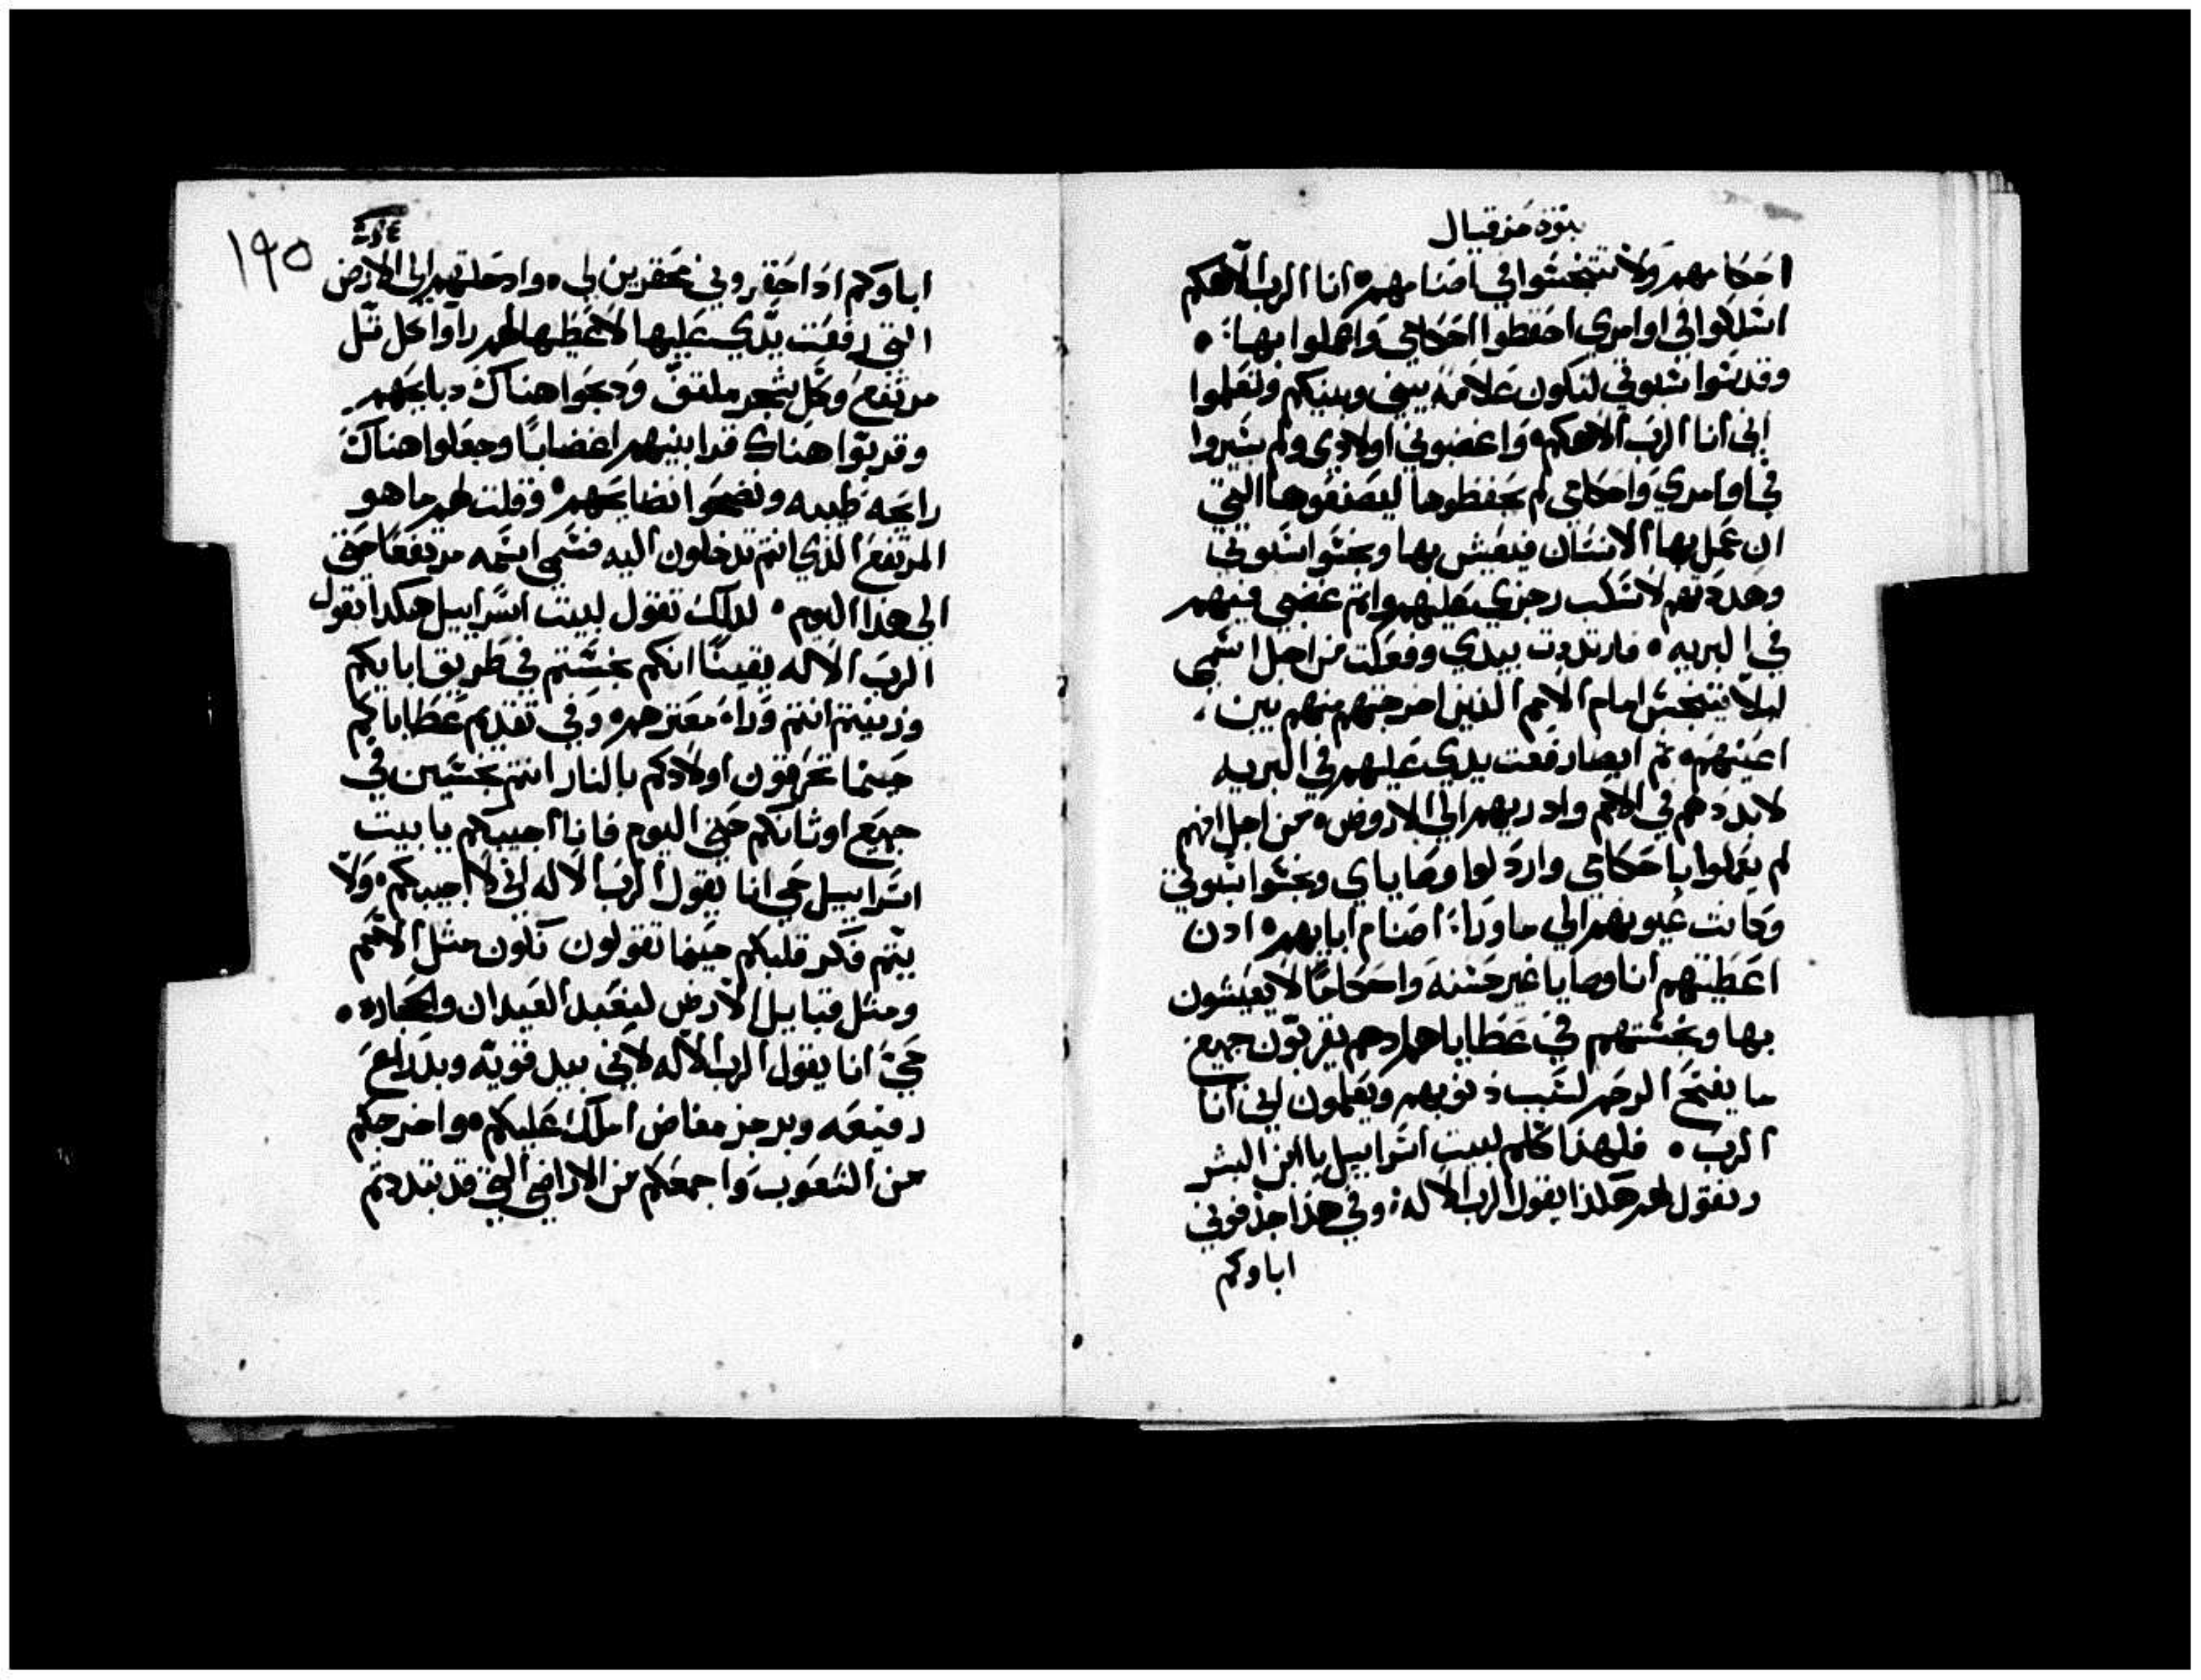 بنوة حزقيال
احكامهم ولا تتنجسوا في اصنامهم انا الرب الاهكم
اسلكوا في اوامري احفظوا احكامي واعملوا بها
وقدسوا سبوتي لتكون علامه بيني وبينكم وتعلموا
اني انا الرب الاهكم واغضبوني اولادي ولم يسيروا
في اوامري واحكامي لم يحفظوها ليصنعوها التي
ان عمل بها الانسان فيعيش بها ونجسوا سبوتي
وهددتهم لاسكب رجزي عليهم واتم غضبي فيهم
في البريه فارتددت بيدي وفعلت من اجل اسمي
ليلا يتنجس امام الامم الذين اخرجتهم منهم بين
اعينهم ثم ايضا رفعت يدي عليهم في البريه
لابددهم في الامم واذريهم الي الاروض من اجل انهم
لم يعملوا باحكامي واردلوا وصاياي ونجسوا سبوتي
وكانت عيونهم الي ما وراء اصنام ابايهم ادن
اعطيتهم انا وصايا غير حسنه واحكاما لا يعيشون
بها ونجستهم في عطاياهم اد هم يقربون جميع
ما يفتح الرحم لسبب ذنوبهم ويعلمون اني انا
الرب فلهذا كلم لبيت اسراييل يا ابن البشر
وتقول لهم هكذا يقول الرب الاله وفي هذا جذفوني
اباوكم
١٩٥
اباوكم اذا احقروني محقرين لي وادخلتهم الي الارض
التي رفعت يدي عليها لاعطيها لهم راوا كل تل
مرتفع وكل شجر ملتف ودبحوا هناك دبايحهم
وقربوا هناك قرابينهم اغضابا وجعلوا هناك
رايحه طيبه ونضحوا نضايحهم وقلت لهم ما هو
المرتفع الذي انتم تدخلون اليه فسمي اسمه مرتفعا حتي
الي هذا اليوم لدلك تقول لبيت اسراييل هكدا يقول
الرب الاله يقينا انكم نجستم في طريق ابايكم
وزنيتم انتم وراء معترهم وفي تقديم عطاياكم
حينما تحرقون اولادكم بالنار انتم نجسين في
جميع اوثانكم حتي اليوم فانا اجيبكم يا بيت
اسراييل حي انا يقول الرب الاله اني لا اجيبكم ولا
يتم فكر قلبكم حينما تقولون نكون مثل الامم
ومثل قبايل الارض لنعبد العيدان والحجاره
حي انا يقول الرب الاله لاني بيد قويه وبدراع
رفيعه وبرجز مفاض املك عليكم واخرجكم
من الشعوب واجمعكم من الاراضي التي قد تبددتم